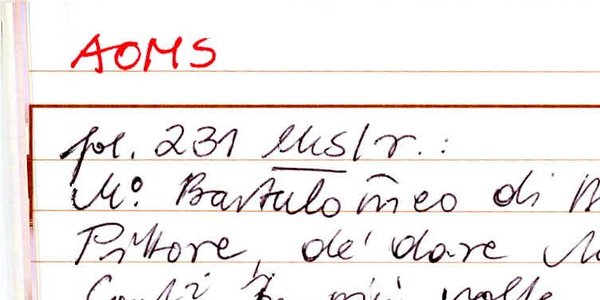 AOMS
fol. 231 Ms/r.:
M.º Bartolomeo di
Pittore, de' dare
più volte